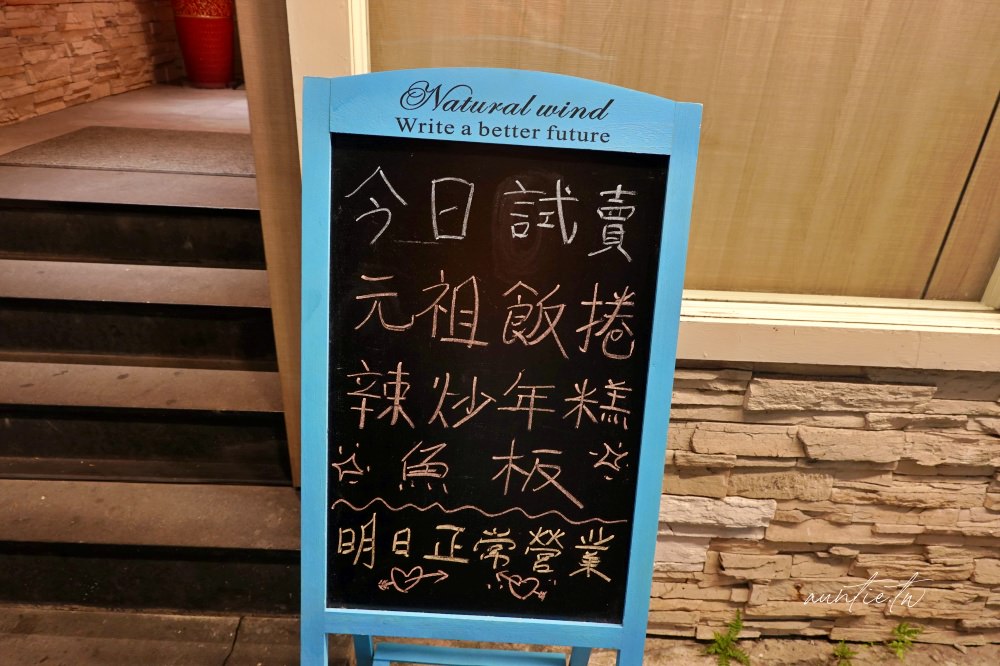 Natural wind
Write a better future
今日試賣
元祖飯捲
辣炒年糕
魚板
明日正常營業
auntie.tw